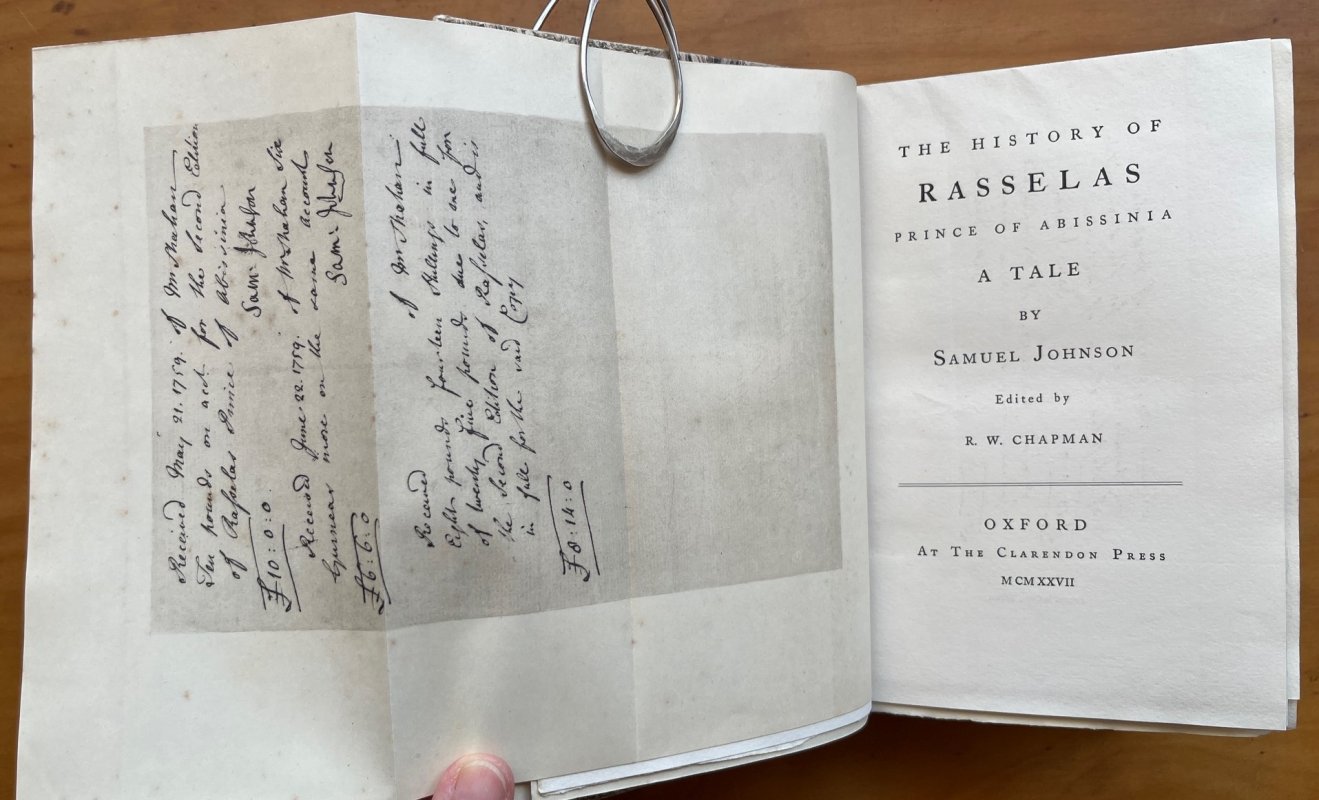 Received May 21. 1759. of Mr Strahan
Ten pounds on acct. for the Second Edition
of Rasselas Prince of Abissinia
Sam: Johnson
£10:0:0
Received June. 22. 1759. of Mr Strahan Six
Guineas more on the same account
Sam: Johnson
£6:6:0
Received of Mr Strahan
Eight pounds Fourteen Shillings in full
of twenty five pounds due to me for
the Second Edition of Rasselas, and is
in full for the said Copy
£8:14:0
THE HISTORY OF
RASSELAS
PRINCE OF ABISSINIA
A TALE
BY
SAMUEL JOHNSON
Edited by
R. W. CHAPMAN
OXFORD
AT THE CLARENDON PRESS
MCMXXVII